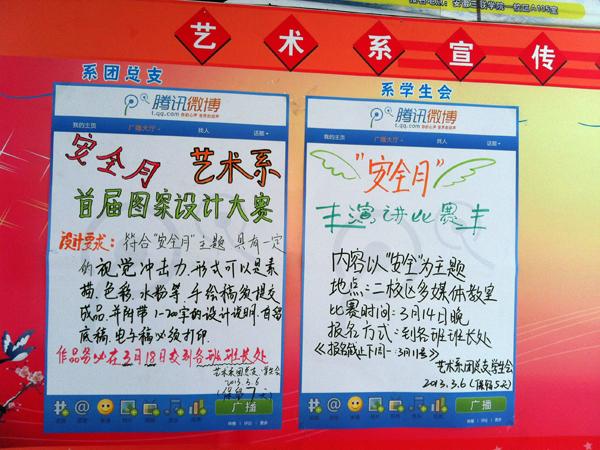 艺术系宣传
系团总支
腾讯微博
t.qq.com 你的心声 世界的回声
我的主页 广播大厅 找人 话题
安全月 艺术系
首届图案设计大赛
设计要求: 符合“安全月”主题 具有一定
的视觉冲击力,形式可以是素
描、色彩、水粉等,手绘稿须提交
成品,并附带
底稿,电子稿必须打印.
作品务必在3月18日交到各班班长处
2013.3.6
广播
系学生会
腾讯微博
t.qq.com 你的心声 世界的回声
我的主页 广播大厅 找人 话题
“安全月”
演讲比赛
内容以“安全”为主题
地点:二校区多媒体教室
比赛时间:3月14日晚
报名方式:到各班班长处
《报名截止下周一:3月11号》
艺术系团总支学生会
2013.3.6(保留5天)
广播